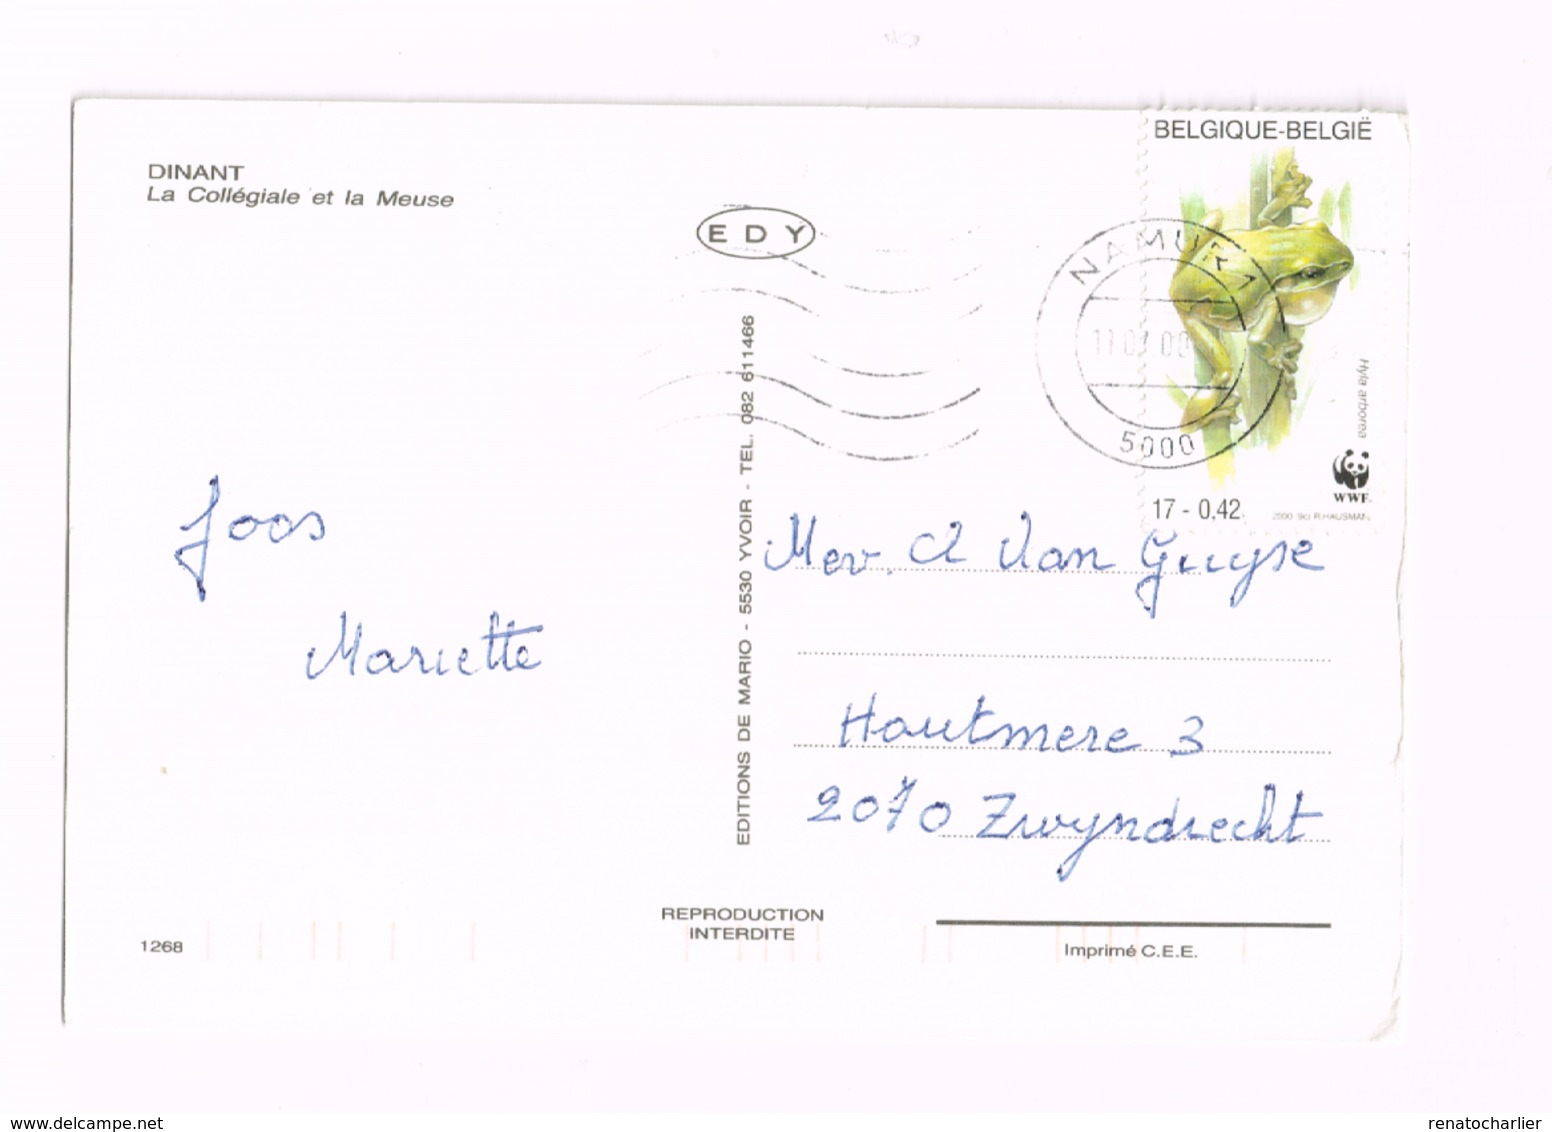 BELGIQUE-BELGIË
DINANT
La Collégiale et la Meuse
E D Y
NAMUR 1
5000
Hyla arborea
WWF
17 - 0,42
2000 Sct R.HAUSMAN
EDITIONS DE MARIO - 5530 YVOIR - TEL. 082 611466
Joos
Mariette
Mev. A Van Guyse
Hautmere 3
2070 Zwyndrecht
REPRODUCTION
INTERDITE
1268
Imprimé C.E.E.
www.delcampe.net
renatocharlier